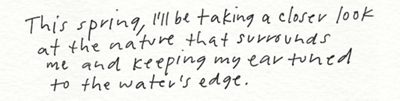 This spring, I'll be taking a closer look
at the nature that surrounds
me and keeping my ear tuned
to the water's edge.